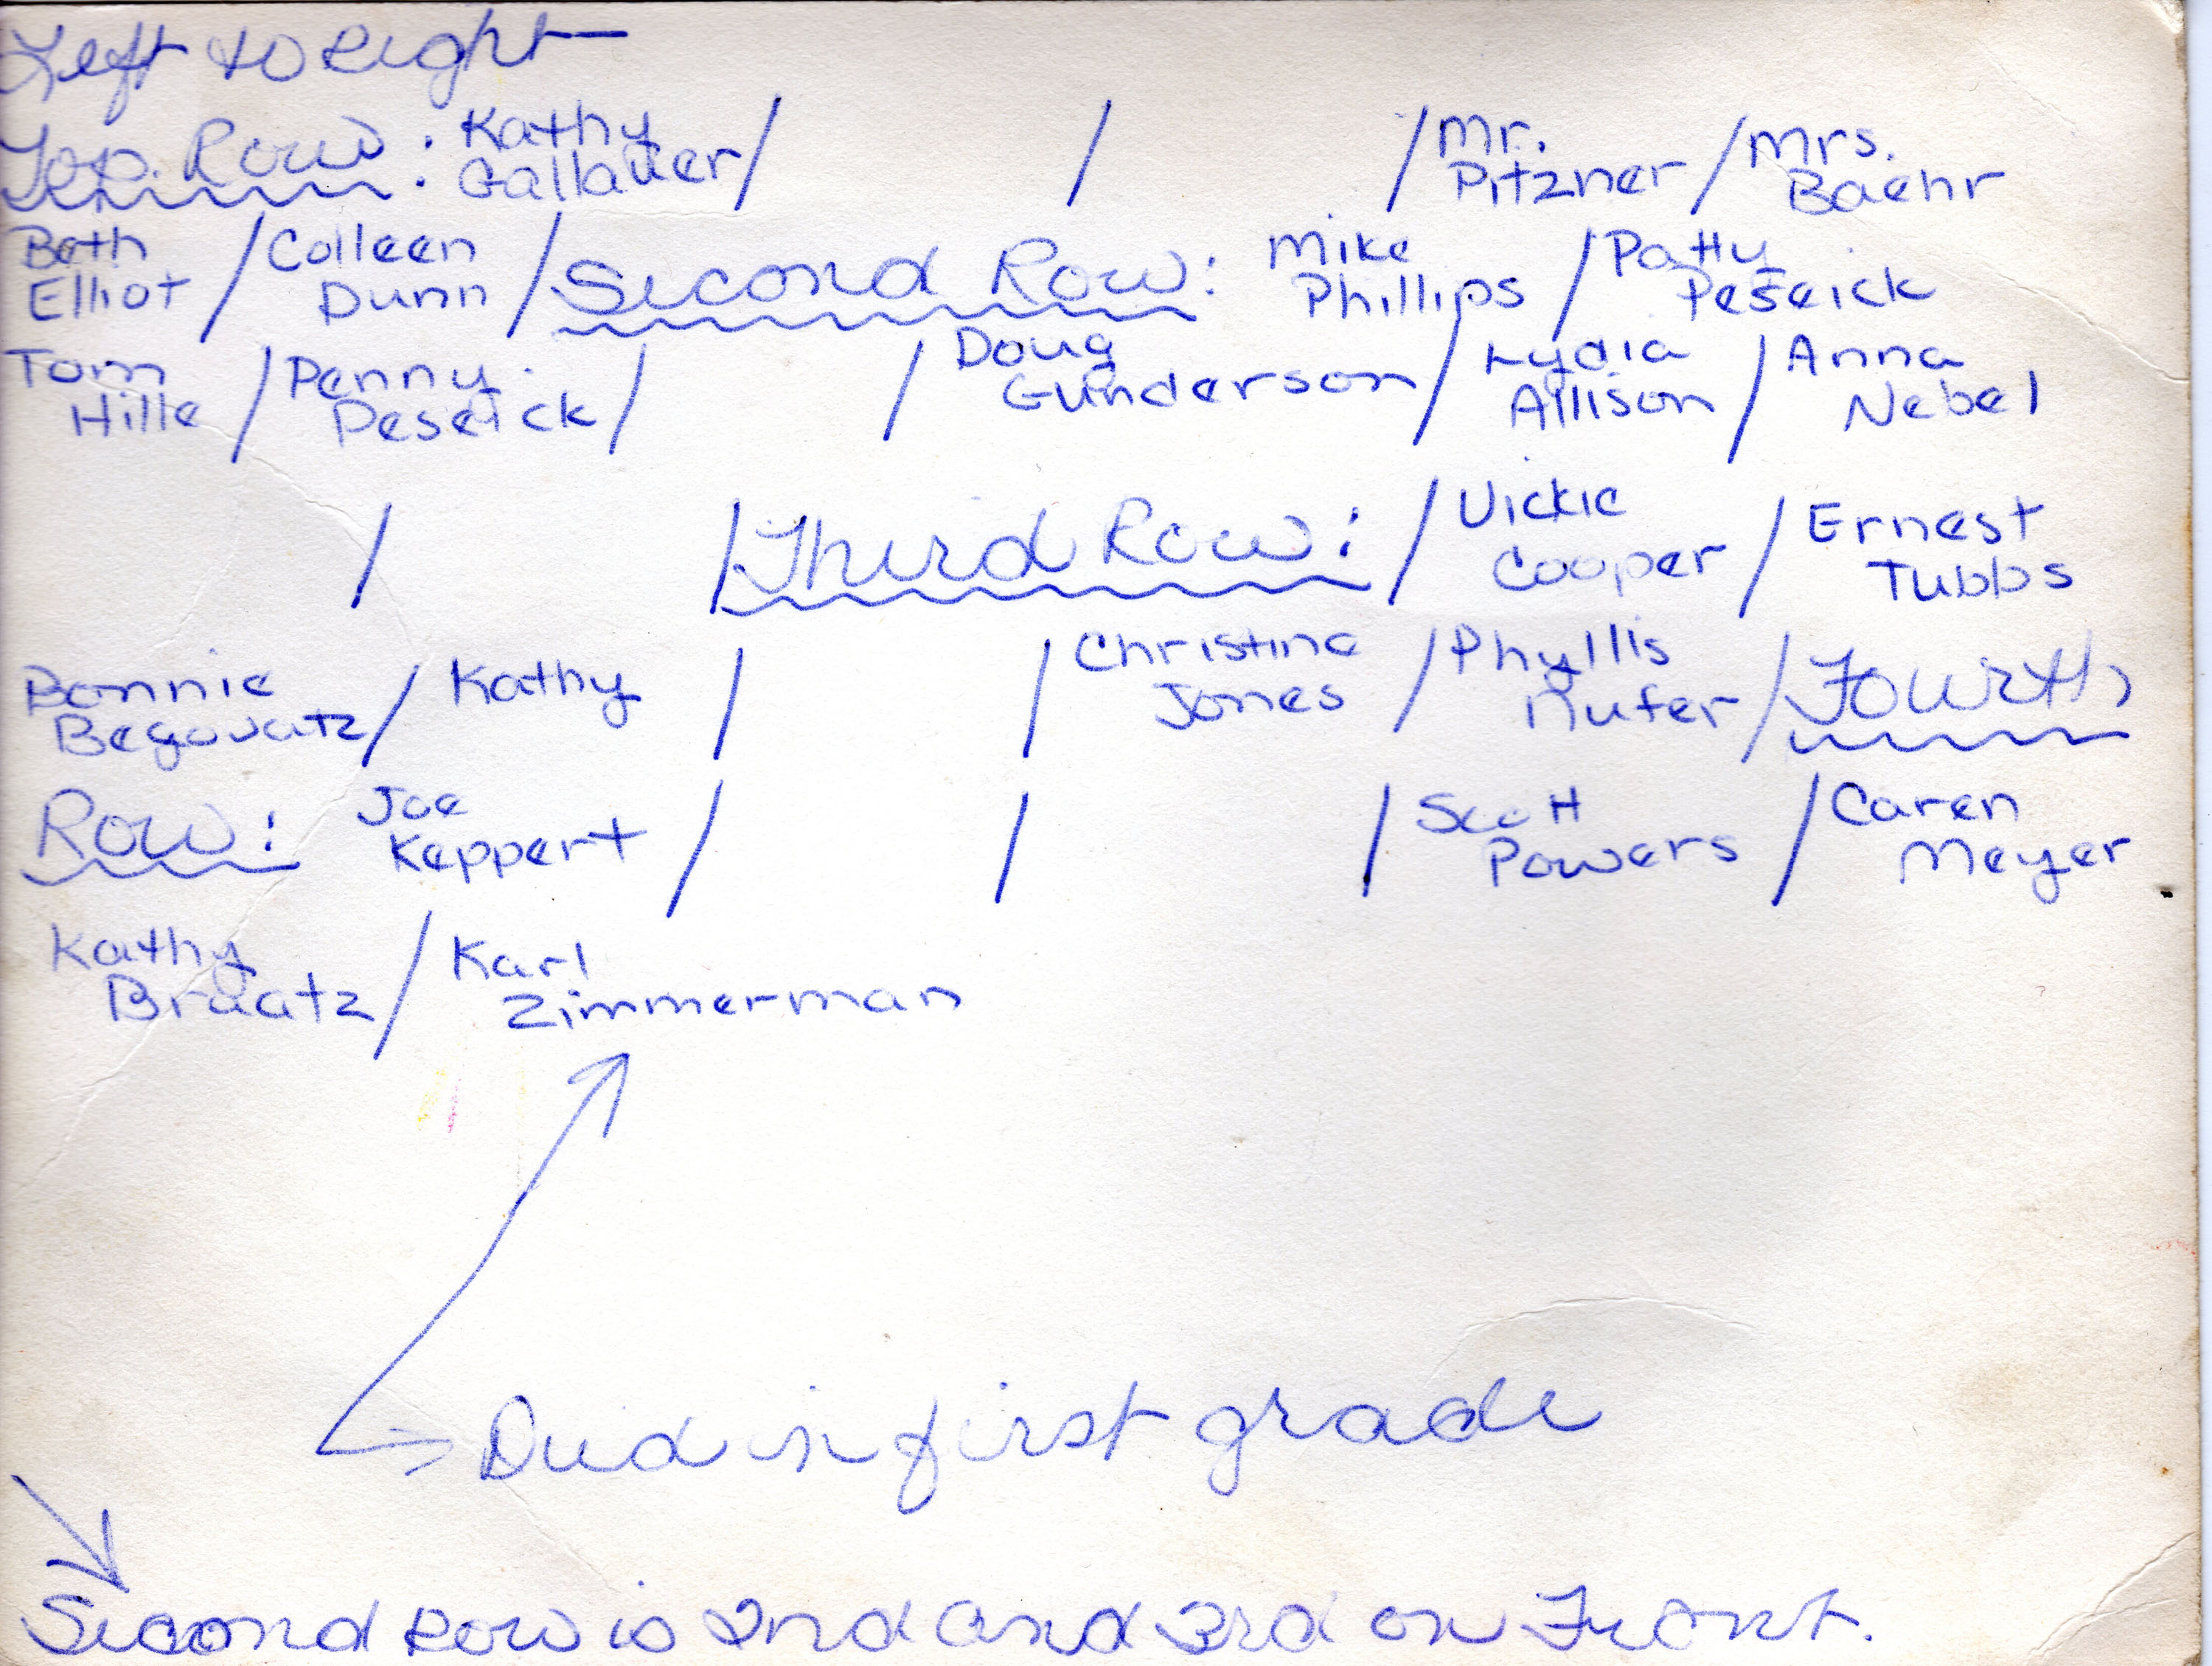 Left to Right—
Top Row: Kathy Gallauer / / / Mr. Pitzner / Mrs. Baehr
Beth Elliot / Colleen Dunn / Second Row: Mike Phillips / Patty Peseick
Tom Hille / Penny Peseick / / Doug Gunderson / Lydia Allison / Anna Nebel
/ / Third Row: / Vickie Cooper / Ernest Tubbs
Bonnie Begovatz / Kathy / / Christine Jones / Phyllis Nufer / Fourth
Row: Joe Keppert / / / Scott Powers / Caren Meyer
Kathy Braatz / Karl Zimmerman
Died in first grade
Second Row is 2nd and 3rd on Front.